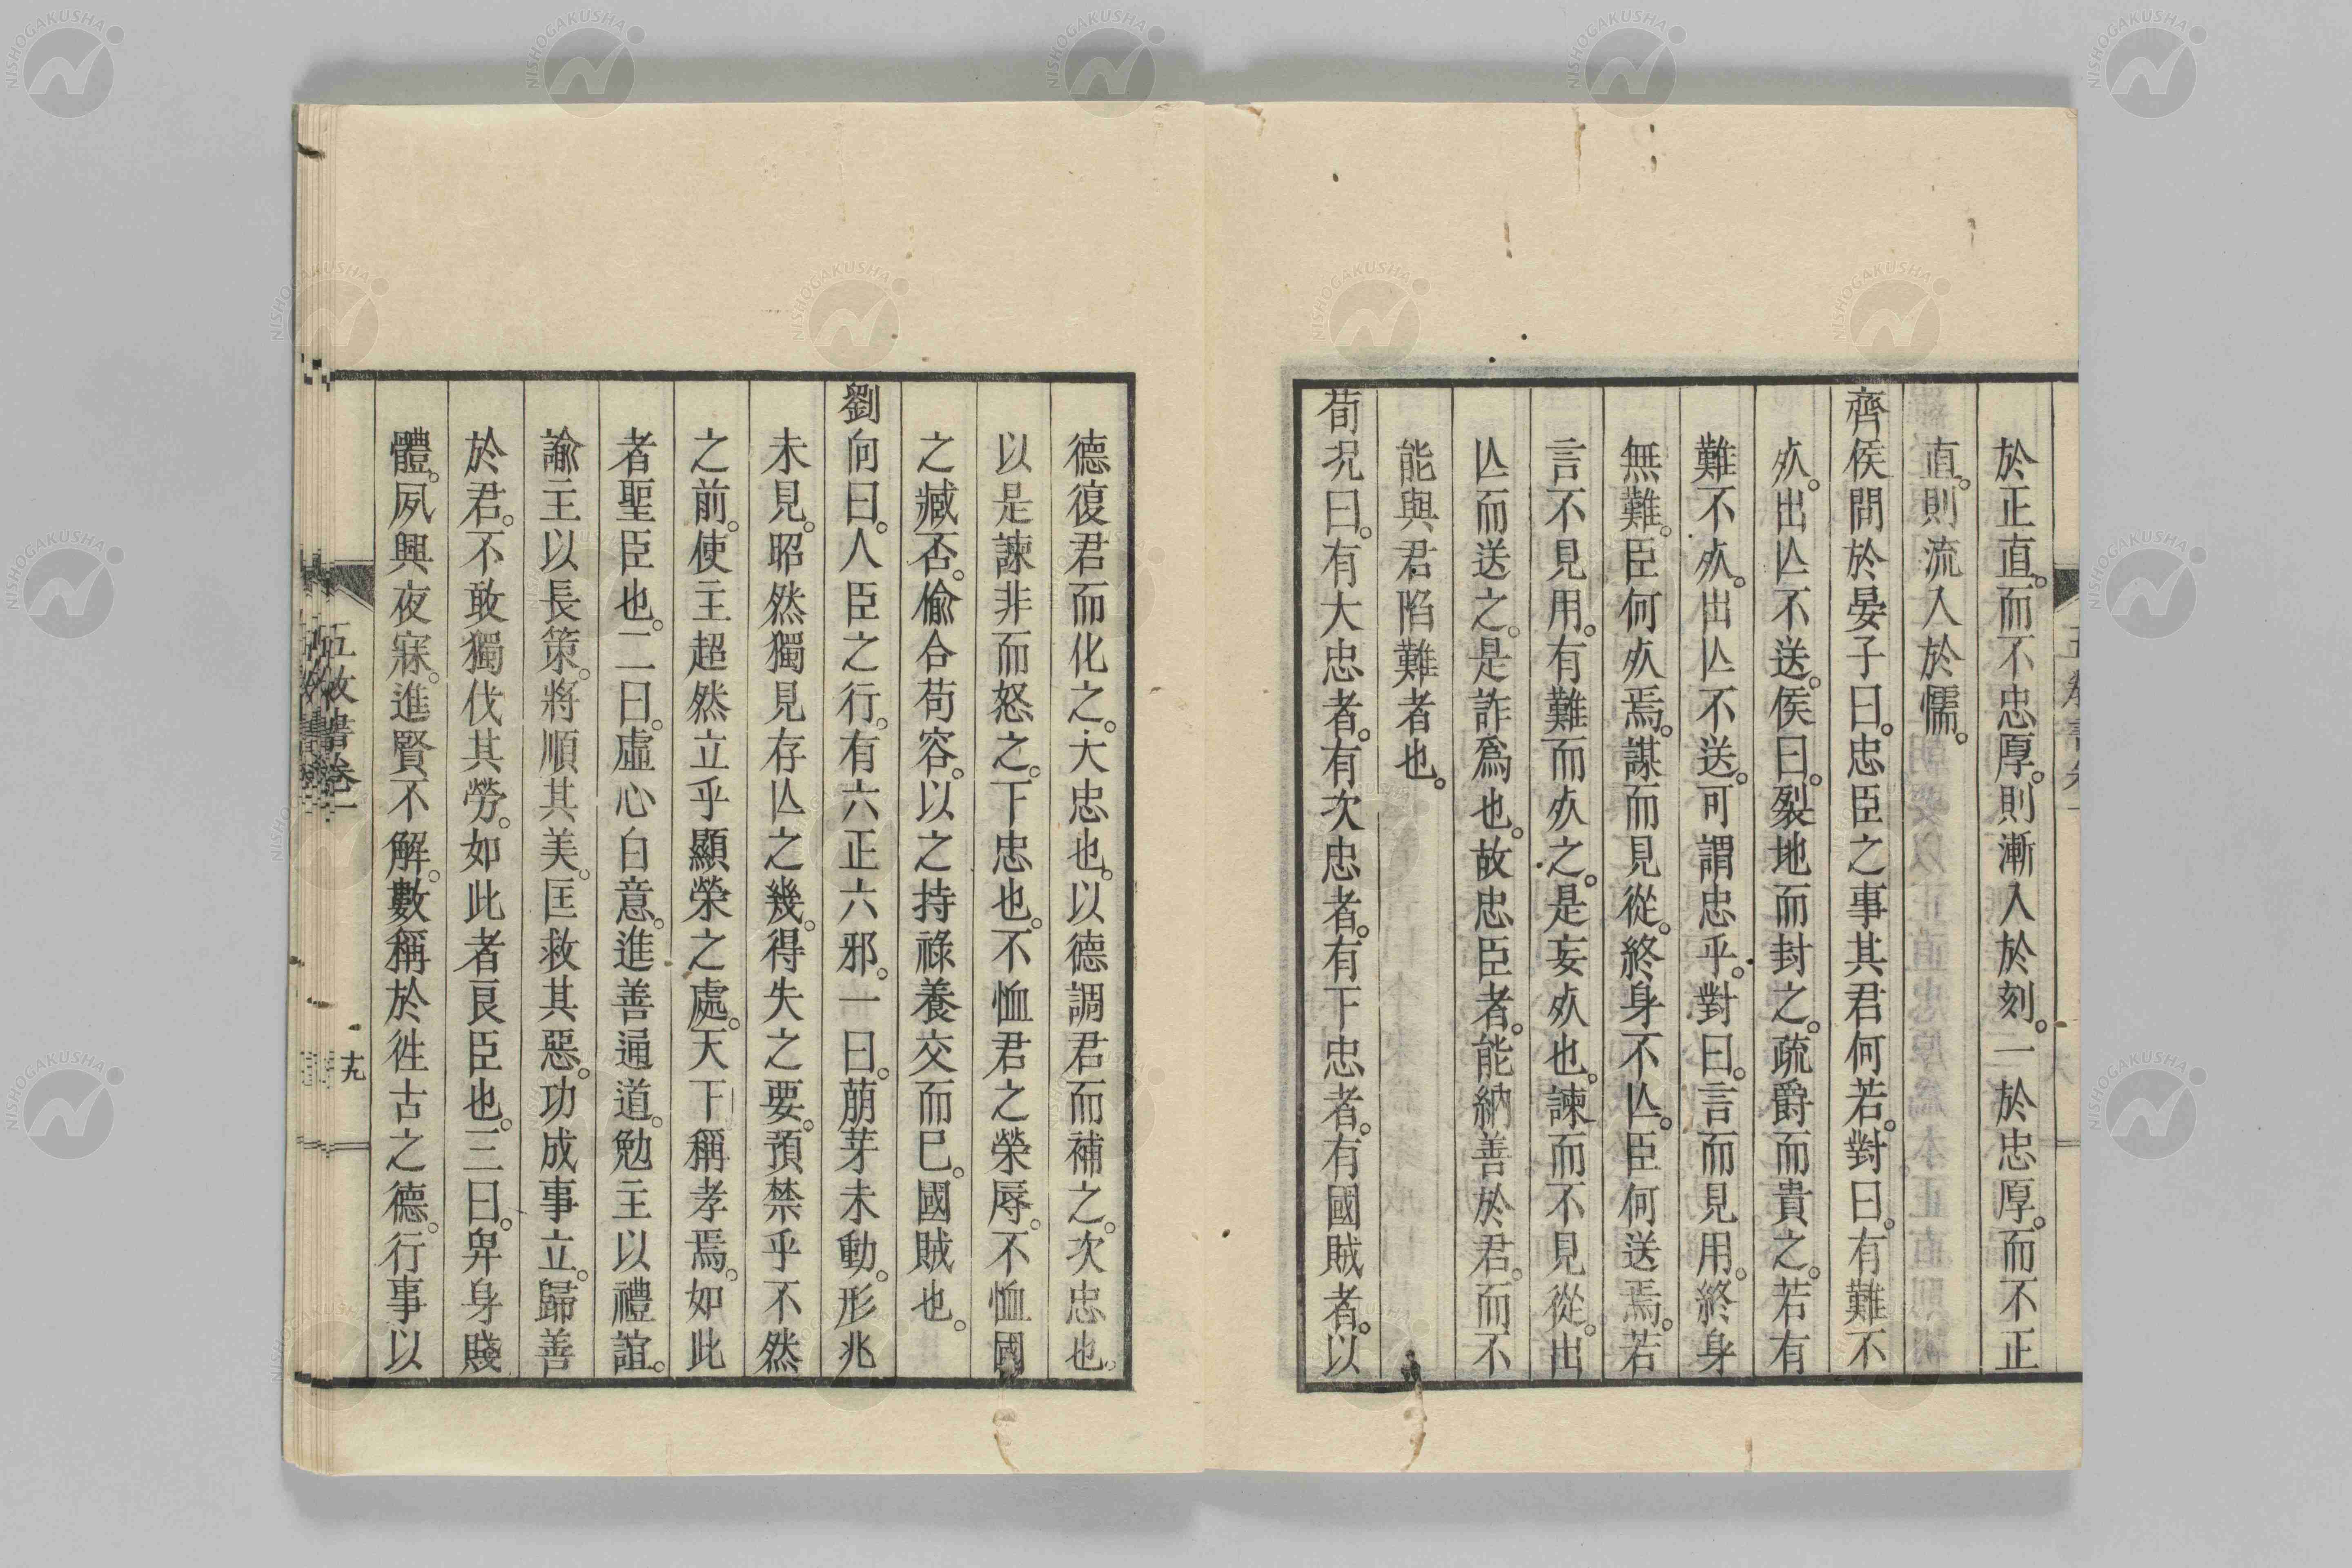 於正直。而不忠厚。則漸入於刻。一於忠厚。而不正
直。則流入於懦。
齊侯問於晏子曰。忠臣之事其君何若。對曰。有難不
㱙。出亾不送。侯曰。裂地而封之。疏爵而貴之。若有
難不㱙。出亾不送。可謂忠乎。對曰。言而見用。終身
無難。臣何㱙焉。謀而見從。終身不亾。臣何送焉。若
言不見用。有難而㱙之。是妄㱙也。諫而不見從。出
亾而送之。是詐爲也。故忠臣者。能納善於君。而不
能與君陷難者也。
荀況曰。有大忠者。有次忠者。有下忠者。有國賊者。以
德復君而化之。大忠也。以德調君而補之。次忠也。
以是諫非而怒之。下忠也。不恤君之榮辱。不恤國
之臧否。偷合苟容。以之持祿養交而已。國賊也。
劉向曰。人臣之行。有六正六邪。一曰。萠芽未動。形兆
未見。昭然獨見存亾之幾。得失之要。預禁乎不然
之前。使主超然立乎顯榮之處。天下稱孝焉。如此
者聖臣也。二曰。虛心白意。進善通道。勉主以禮誼。
諭主以長策。將順其美。匡救其惡。功成事立。歸善
於君。不敢獨伐其勞。如此者良臣也。三曰。卑身賤
體。夙興夜寐。進賢不解。數稱於徃古之德。行事以
五種書卷一
十九
NISHOGAKUSHA